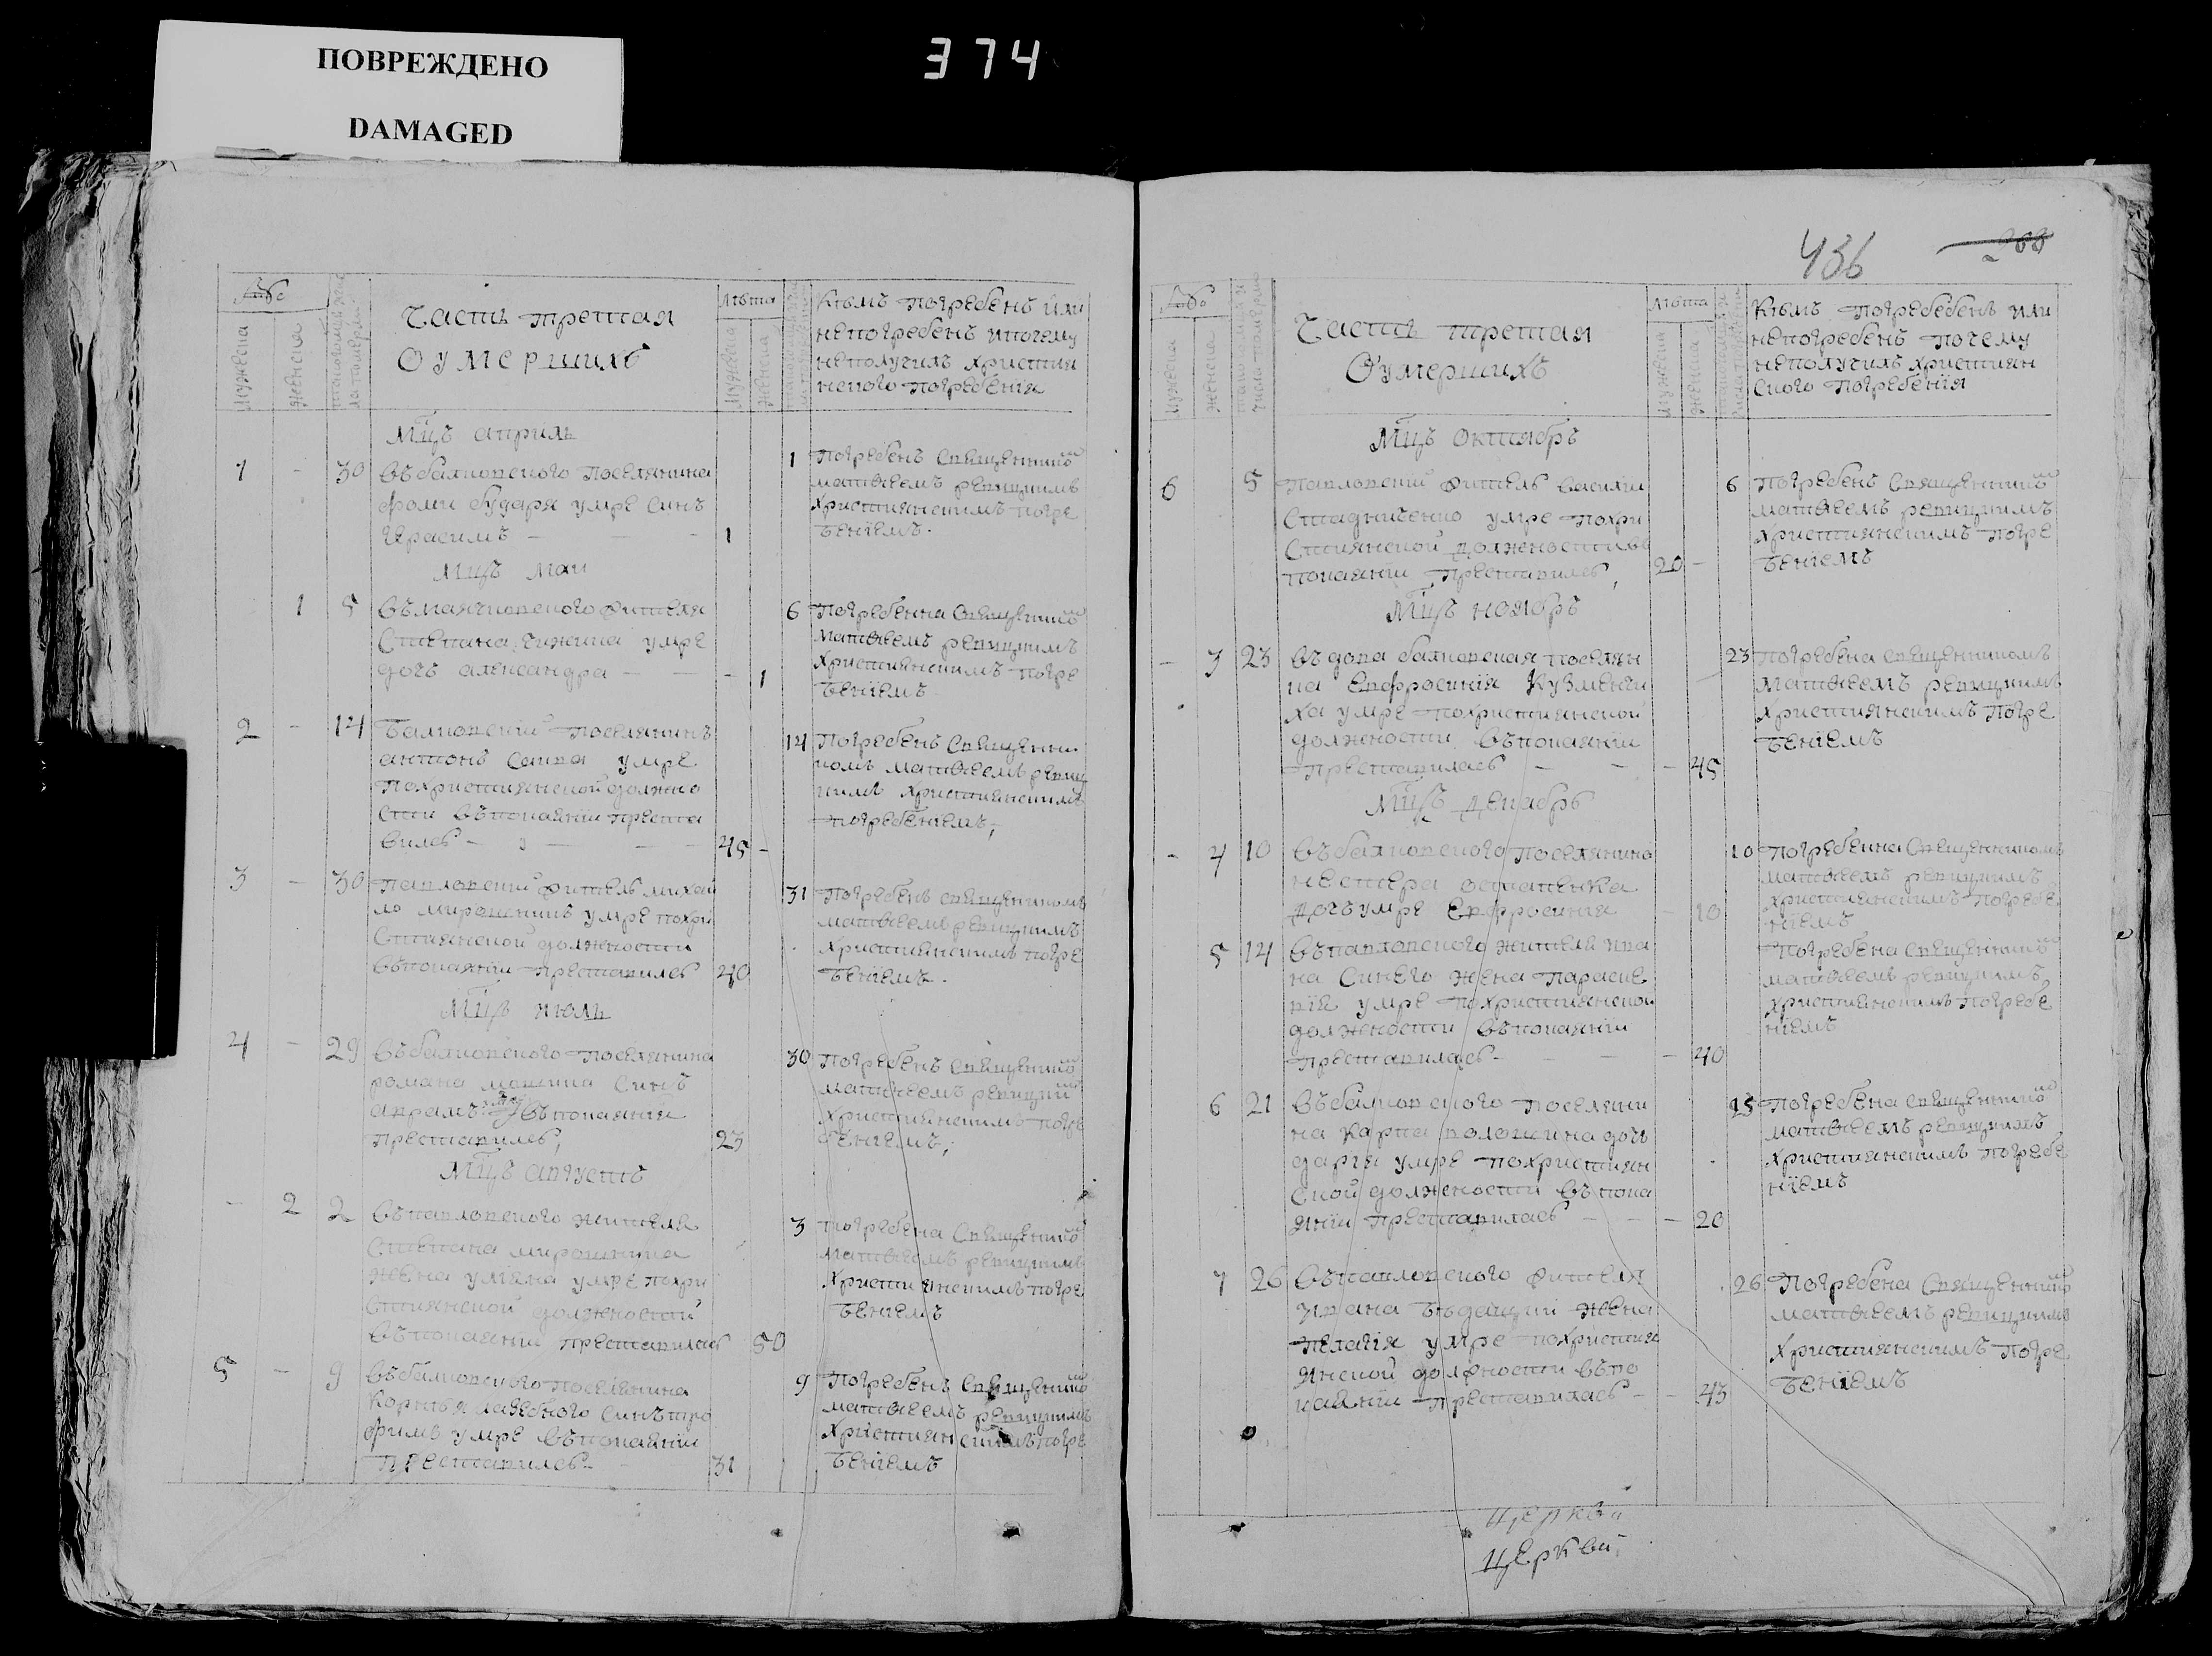 ПОВРЕЖДЕНО
DAMAGED
374
436
Часть третая
О умершихъ
Лѣта
мужеска
женска
Кѣмъ погребенъ или
непогребенъ ипочему
неполучилъ христия
нского погребения
Мц̃ъ априль
1 - 30 въ балковского поселянина
фоми бударя умре синъ
Герасимъ - - - 1
1 Погребенъ священнико
матвеемъ ревуцкимъ
християнскимъ погре
бениемъ.
Мц̃ъ маи
1 5 въ маячковского жителя
Степана чижика умре
дочъ александра - - - 1
6 Погребенна священнико
матвеемъ ревуцкимъ
християнскимъ погре
бениемъ
2 - 14 балковский поселянинъ
антонъ савва умре
похристиянской должно
сти въ покаянии преста
вилсь - - - 45 -
14 Погребенъ священни
комъ матвеемъ ревуц
кимъ християнскимъ
погребениемъ,
3 - 30 павловский житель михай
ло мирошникъ умре похри
стиянской должности
въ покаянии преставилсь 40
31 Погребенъ священникомъ
матвеемъ ревуцкимъ
християнскимъ погре
бениемъ.
Мц̃ъ июль
4 - 29 въ балковского поселянина
романа синъ
аврамъ умре въ покаянии
преставилсь, 23
30 Погребенъ священнико
матвеемъ ревуцки
християнскимъ погре
бениемъ,
Мц̃ъ августъ
- 2 2 въ павловского жителя
Степана мирошника
жена умре похри
стиянской должности
въ покаянии преставилась 50
3 погребена священнико
матвеемъ ревуцкимъ
християнскимъ погре
бениемъ
5 - 9 въ балковского поселянина
корнѣя синъ тро
фимъ умре въ покаянии
преставилсь 31
9 Погребенъ священнико
матвеемъ ревуцкимъ
християнскимъ погре
бениемъ
Часть третая
О умершихъ
Лѣта
мужеска
женска
Кѣмъ погребебенъ или
непогребенъ почему
неполучилъ християн
ского погребения
Мц̃ъ октябръ
6 5 павловский житель василий
Стадниченко умре похри
стиянской должности въ
покаянии преставилсь, 20 -
6 Погребенъ священнико
матвеемъ ревуцкимъ
християнскимъ погре
бениемъ
Мц̃ъ ноябръ
- 3 23 въдова балковская поселян
ка Евфросиния Кузменчи
ха умре похристиянской
должности въ покаянии
преставилась - - - 45
23 Погребена священникомъ
матвеемъ ревуцкимъ
християнскимъ погре
бениемъ
Мц̃ъ декабръ
- 4 10 въ балковского поселянина
нестера остапенка
дочъ умре Евфросиния - 10
10 погребенна священникомъ
матвеемъ ревуцкимъ
християнскимъ погребе
ниемъ
5 14 въ павловского жителя ива
на Синего жена параске
вия умре похристиянской
должности въ покаянии
преставилась - - - 40
Погребена священнико
матвеемъ ревуцкимъ
християнскимъ погребе
ниемъ
6 21 въ балковского поселяни
на карпа волошина дочъ
дария умре похристиян
ской должности въ пока
янии преставилась - - - 20
15 Погребена священнико
матвеемъ ревуцкимъ
християнскимъ погребе
ниемъ
7 26 въ павловского жителя
ивана жена
пелагия умре похристия
янской должности въ по
каянии преставилась - - 43
26 Погребена священнико
матвеемъ ревуцкимъ
християнскимъ погре
бениемъ
церкви
церкви,